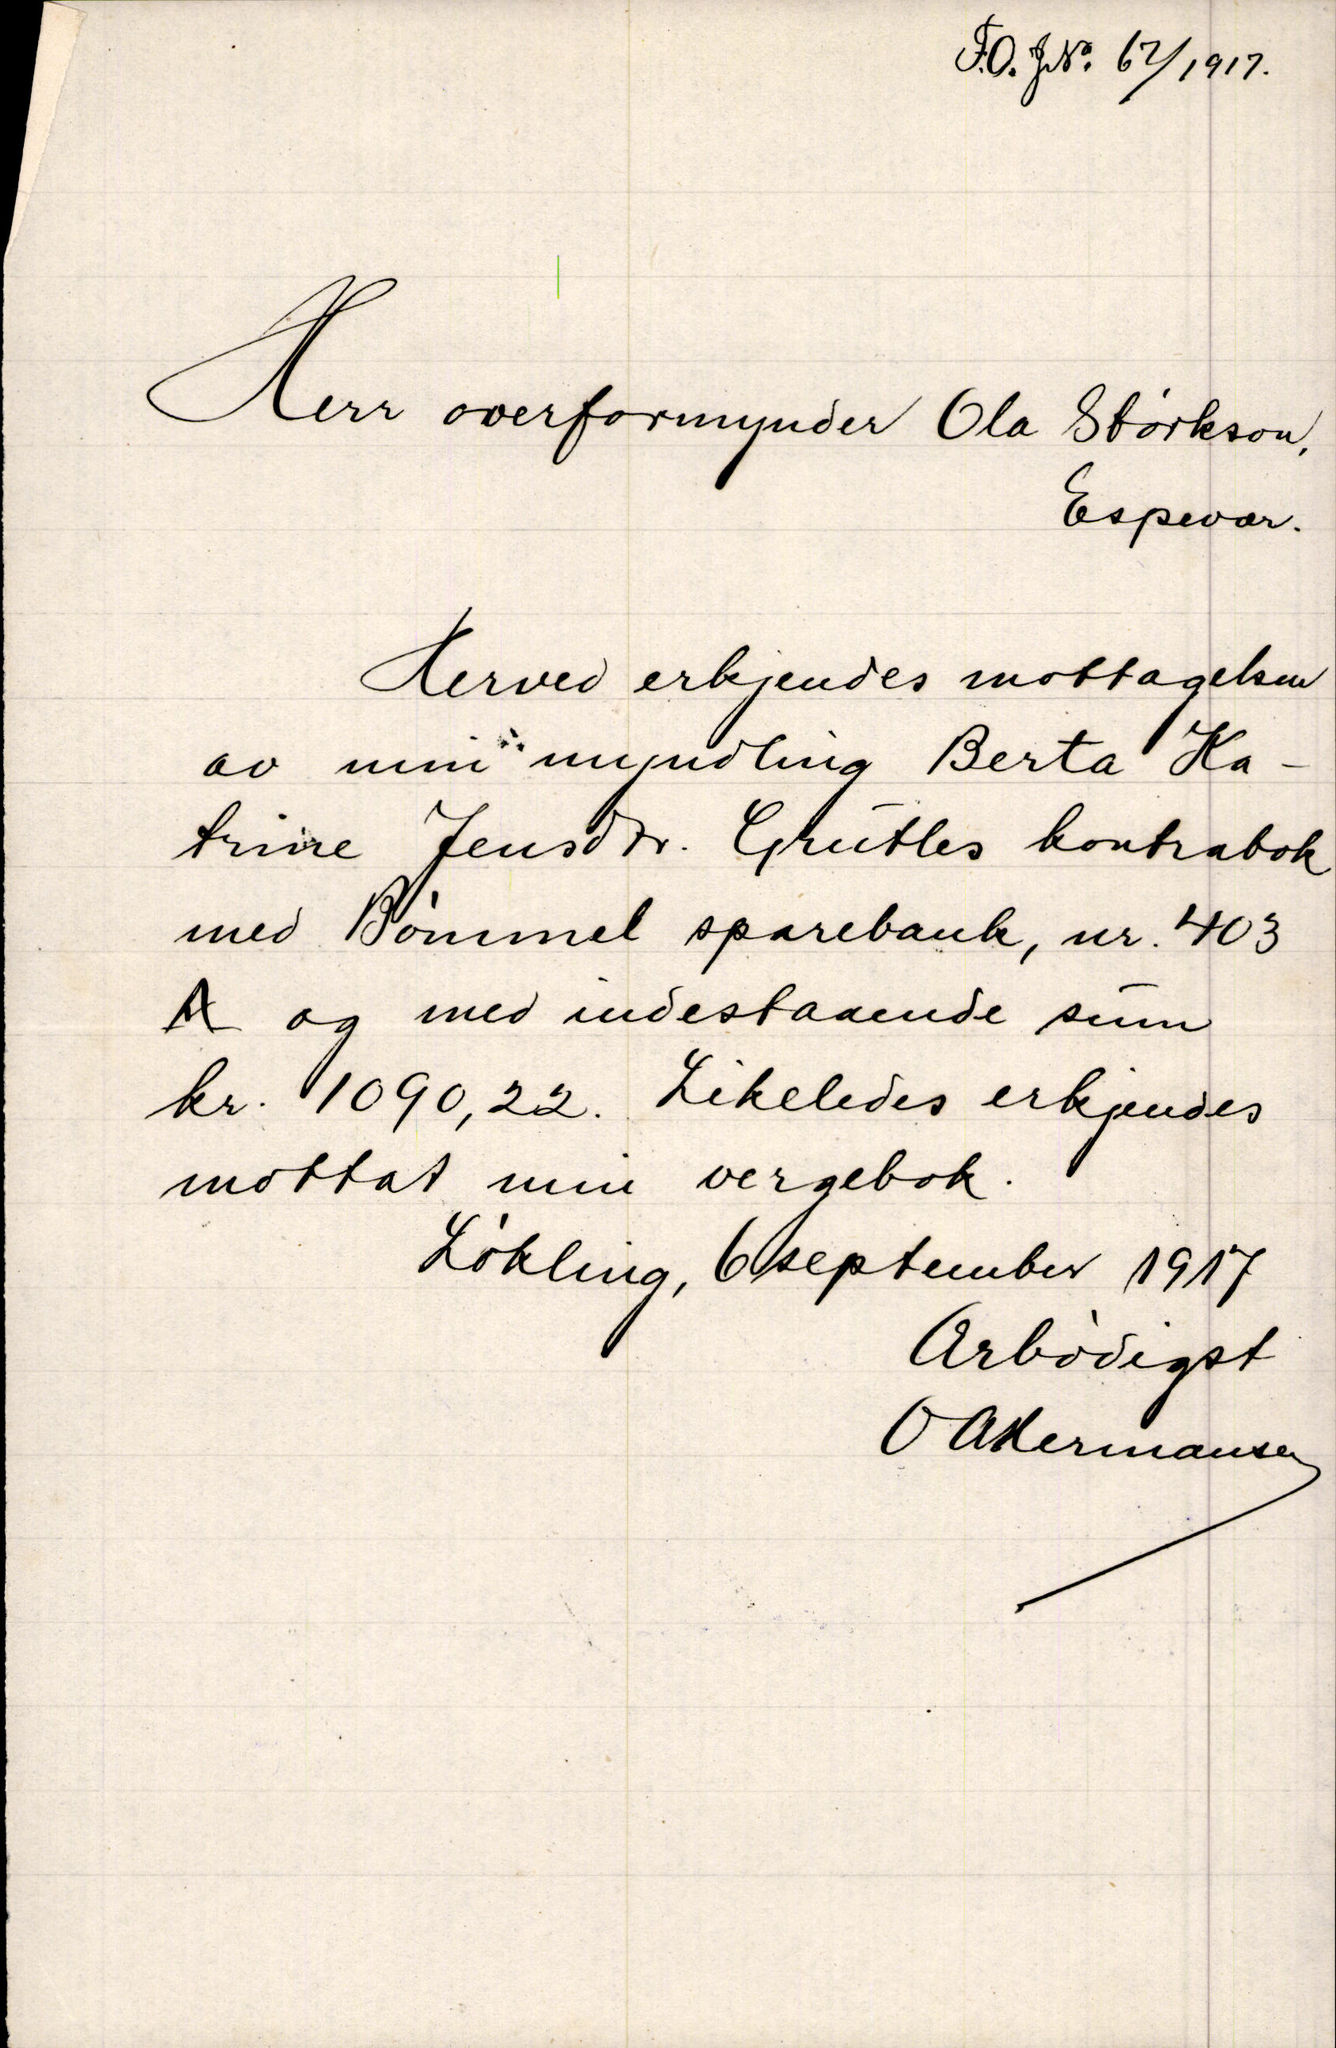 F.O. J.No. 67/1917.
Herr overformynder Ola Størkson,
Espevær.
Herved erkjendes mottagelsen
av min myndling Berta Ka-
trine Jensdtr. Grutles kontrabok
med Bømmel sparebank, nr. 403
A og med indestaaende sum
kr. 1090,22. Likeledes erkjendes
mottat min vergebok.
Løkling, 6 september 1917
Ærbødigst
O A Hermansen